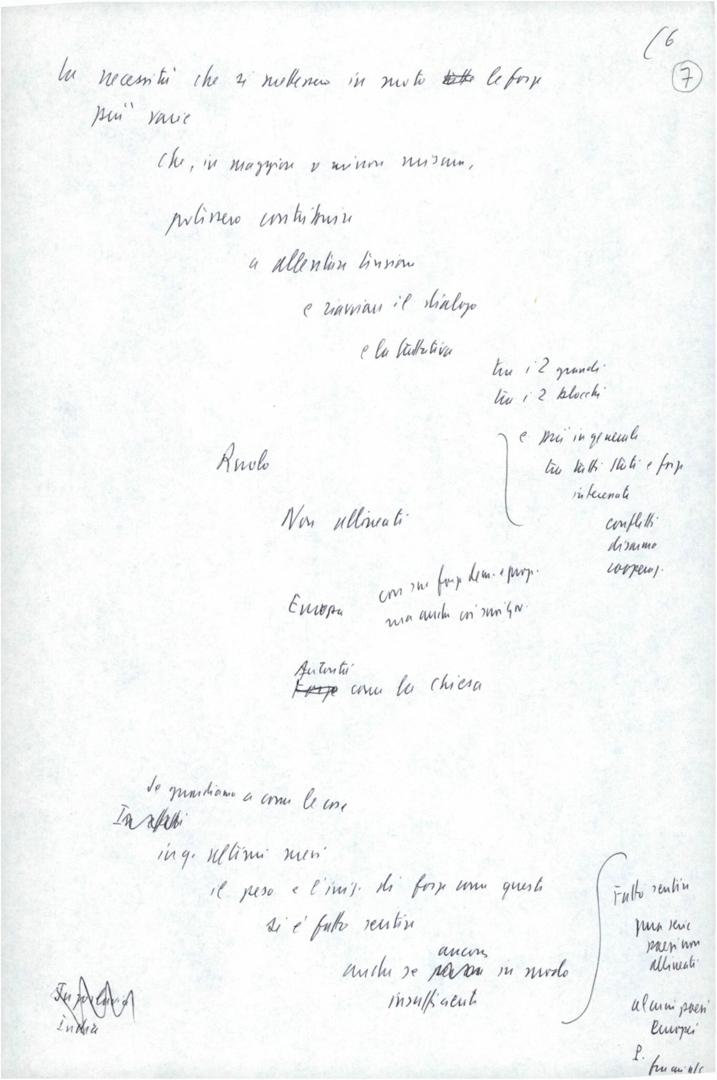 (6
7
la necessità che si mettessero in moto le forze
più varie
che, in maggiore o minore misura,
potessero contribuire
a allentare tensioni
e riavviare il dialogo
e la trattativa
tra i 2 grandi
tra i 2 blocchi
e più in generale
tra tutti stati e forze
interessati
conflitti
disarmo
cooperaz.
Ruolo
Non allineati
Europa
con sue forze dem. e prog.
ma anche con suoi gov.
Autorità
Forze come la Chiesa
Se guardiamo a come le cose
In effetti
in q. ultimi mesi
il peso e l'iniz. di forze come queste
si è fatto sentire
ancora
anche se in modo
insufficiente
Fatto sentire
paesi non
allineati
alcuni paesi
Europei
P.
India